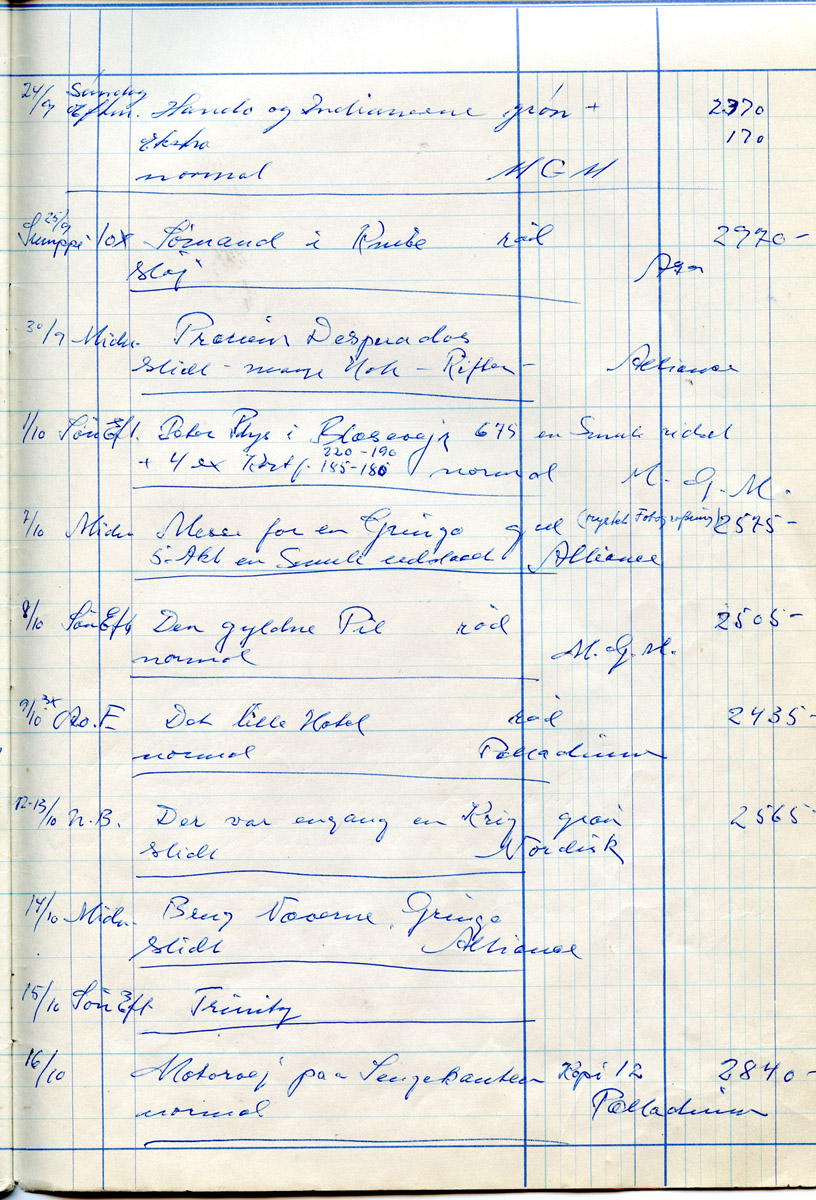 24/9 Søndag Eftm. Hando og Indianerne grøn + 2370
Ekstra 170
normal MGM
25/9 Sumppi 10x Sømand i Knibe rød 2970-
Støj Asa
30/9 Midn. Desperados
Slidt - mange Hak - Rifter - Alliance
1/10 Søn Eft. Peter Plys i Blæsevejr 675 en Smule ridset
+ 4 ex 220-190
185-180 normal M.G.M.
7/10 Midn Messe for en Gringo gul (mystisk Fotografering) 2575-
5. Akt en Smule udslaaet Alliance
8/10 Søn Eft Den gyldne Pil rød 2505-
normal M.G.M.
9/10 3x Ro.F Det lille Hotel rød 2435-
normal Palladium
12-13/10 N.B. Der var engang en Krig grøn 2565-
Slidt Nordisk
14/10 Midn. Brug Næverne, Gringo
Slidt Alliance
15/10 Søn Eft Trinity
16/10 Motorvej paa Sengekanten Kopi 12 2840-
normal Palladium